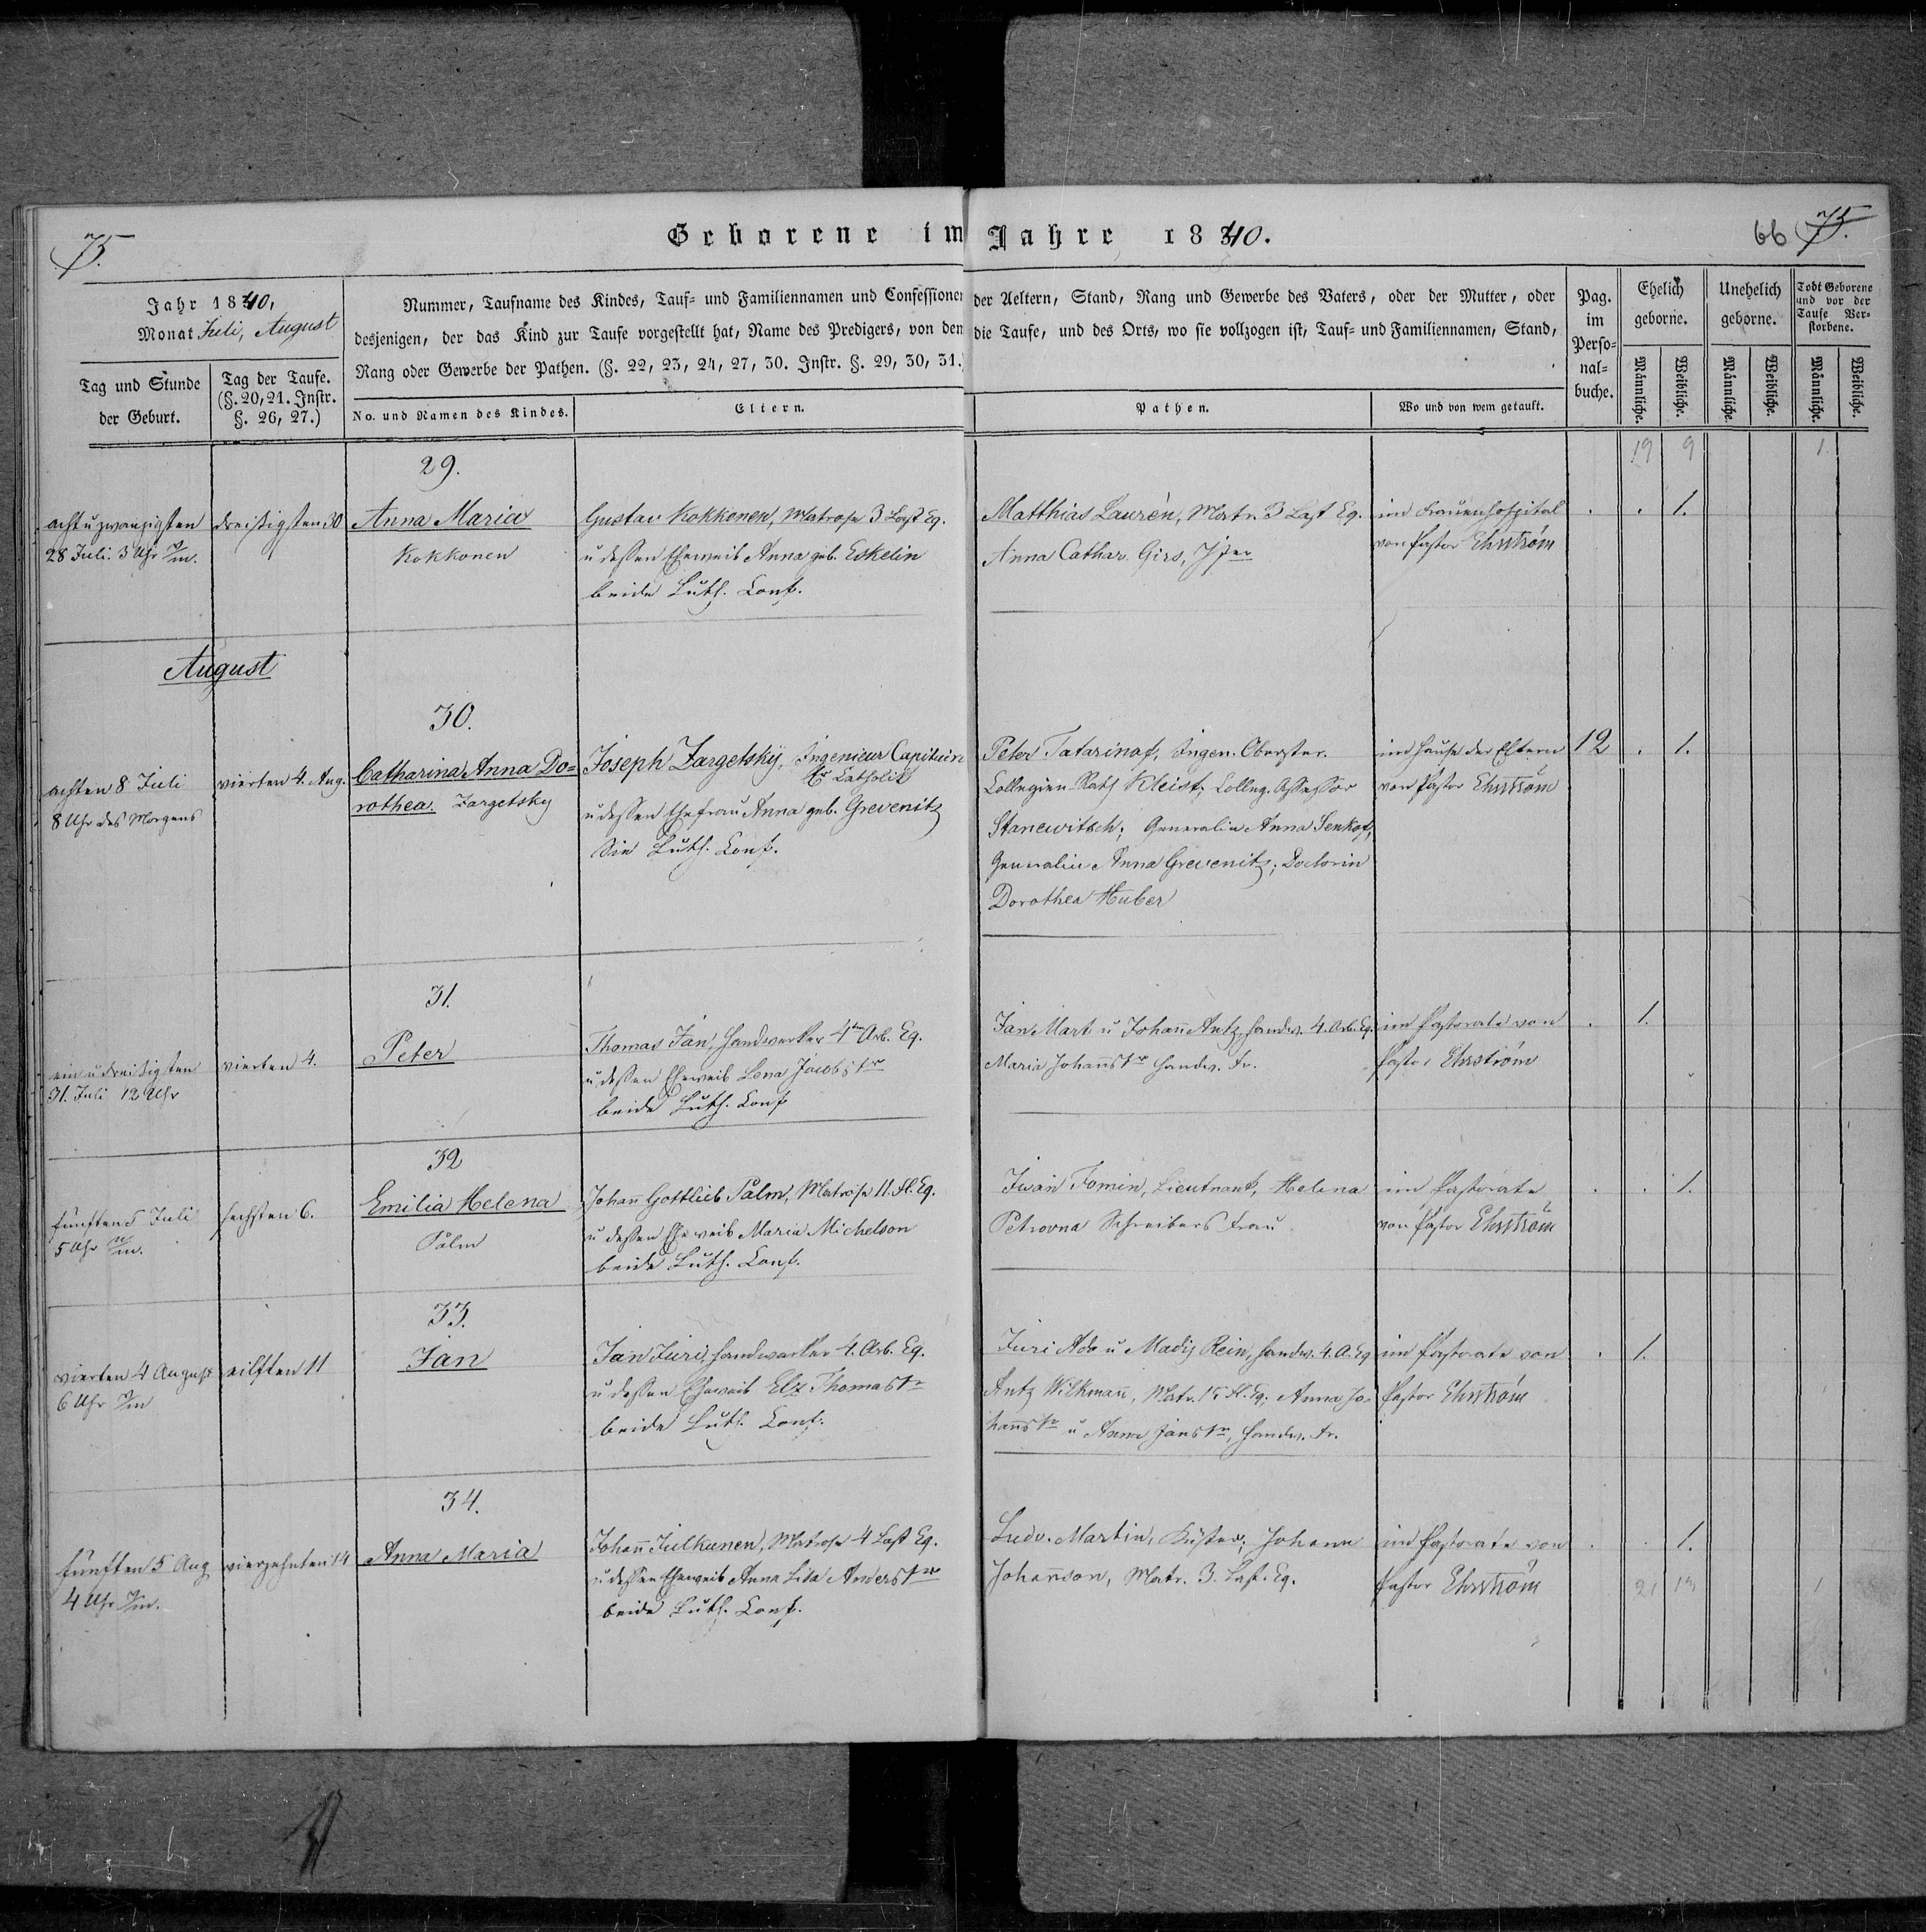 75.
Geborene im Jahre 1840.
66 75.
Jahr 1840,
Monat Juli, August
Tag und Stunde
der Geburt.
Tag der Taufe.
(§. 20, 21. Instr.
§. 26, 27.)
Nummer, Taufname des Kindes, Tauf- und Familiennamen und Confessionen der Aeltern, Stand, Rang und Gewerbe des Vaters, oder der Mutter, oder
desjenigen, der das Kind zur Taufe vorgestellt hat, Name des Predigers, von dem die Taufe, und des Orts, wo sie vollzogen ist, Tauf- und Familiennamen, Stand,
Rang oder Gewerbe der Pathen. (§. 22, 23, 24, 27, 30. Instr. §. 29, 30, 31.)
No. und Namen des Kindes.
Eltern.
Pathen.
Wo und von wem getauft.
Pag.
im
Perso-
nal-
buche.
Ehelich
geborne.
Unehelich
geborne.
Todt Geborene
und vor der
Taufe Ver-
storbene.
Männliche.
Weibliche.
Männliche.
Weibliche.
Männliche.
Weibliche.
19 9 1.
29.
acht u zwanzigsten
28 Juli. 3 Uhr
dreißigsten 30
Anna Maria
Kokkonen
Gustav Kokkonen, Matrose 3 Last Eq.
u dessen Eheweib Anna geb. Eskelin
beide Luth. Conf.
Matthias Laurén, Matr. 3 Last Eq.
Anna Cathar. Girs,
im Frauenhospital
von Pastor Ehrström
. . 1.
August
30.
achten 8 Juli
8 Uhr des Morgens
vierten 4. Aug.
Catharina Anna Do-
rothea. Zargetsky
Joseph Zargetsky, Ingenieur Capitain
Er Catholik
u dessen Ehefrau Anna geb. Grevenitz
Sie Luth. Conf.
Peter Tatarinof, Ingen. Oberster.
Collegien-Rath Kleist; Colleg. Assessor
Stanewitsch; Generalin Anna Senkof,
Generalin Anna Grevenitz; Doctorin
Dorothea Huber
im Hause der Eltern
von Pastor Ehrström
12 . 1.
31.
ein u dreißigsten
31. Juli 12 Uhr
vierten 4.
Peter
Thomas Jan, Handwerker 4ten Arb. Eq.
u dessen Eheweib Lena Jacobs tr
beide Luth. Conf
Jan Mart u Johan Antz, Handw. 4. Arb. Eq.
Maria Johanns tr Handw. Fr.
im Pastorate von
Pastor Ehrström
. 1.
32
fünften 5 Juli
5 Uhr
sechsten 6.
Emilia Helena
Palm
Johan Gottlieb Palm, Matrose 11. Fl. Eq.
u dessen Eheweib Maria Michelson
beide Luth. Conf.
Iwan Fomin, Lieutnant, Helena
Petrovna Schreibers Frau
im Pastorate
von Pastor Ehrström
. . 1.
33.
vierten 4 August
6 Uhr
eilften 11
Jan
Jan Juri, Handwerker 4. Arb. Eq.
u dessen Eheweib Elz Thomas tr
beide Luth. Conf.
Juri Ado u Madis Rein, Handw. 4. A. Eq
Antz Wilkman, Matr. Fl. Eq; Anna Jo-
hanns tr u Anna Jans tr, Handw. Fr.
im Pastorate von
Pastor Ehrström
. 1.
34.
fünften 5 Aug
4 Uhr
vierzehnten 14
Anna Maria
Johan Julkunen, Matrose 4 Last Eq.
u dessen Eheweib Anna Lisa Anders tr
beide Luth. Conf.
Ludv. Martin, Küster; Johann
Johanson, Matr. 3. Last. Eq.
im Pastorate von
Pastor Ehrström
. . 1.
21 13 1